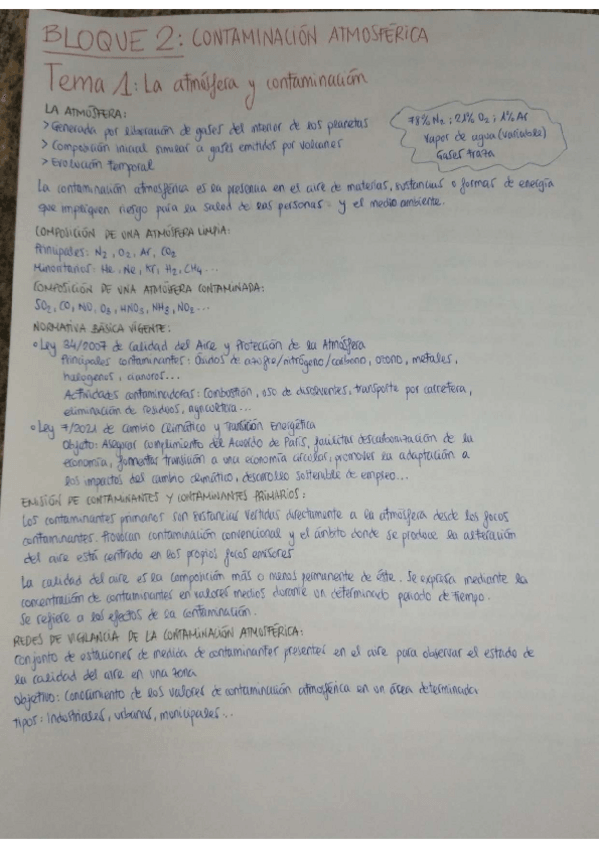 BLOQUE 2: CONTAMINACIÓN ATMOSFÉRICA
Tema 1: La atmósfera y contaminación
LA ATMÓSFERA:
> Generada por liberación de gases del interior de los planetas
> Composición inicial similar a gases emitidos por volcanes
> Evolución temporal
78% N₂ ; 21% O₂ ; 1% Ar
Vapor de agua (variable)
Gases traza
La contaminación atmosférica es la presencia en el aire de materias, sustancias o formas de energía
que impliquen riesgo para la salud de las personas y el medio ambiente.
COMPOSICIÓN DE UNA ATMÓSFERA LIMPIA:
Principales: N₂, O₂, Ar, CO₂
Minoritarios: He, Ne, Kr, H₂, CH₄...
COMPOSICIÓN DE UNA ATMÓSFERA CONTAMINADA:
SO₂, CO, NO, O₃, HNO₃, NH₃, NO₂...
NORMATIVA BÁSICA VIGENTE:
• Ley 34/2007 de Calidad del Aire y Protección de la Atmósfera
Principales contaminantes: Óxidos de azufre/nitrógeno/carbono, ozono, metales,
halógenos, cianuros...
Actividades contaminadoras: Combustión, uso de disolventes, transporte por carretera,
eliminación de residuos, agricultura...
• Ley 7/2021 de Cambio Climático y Transición Energética
Objeto: Asegurar cumplimiento del Acuerdo de París, facilitar descarbonización de la
economía, fomentar transición a una economía circular, promover la adaptación a
los impactos del cambio climático, desarrollo sostenible de empleo...
EMISIÓN DE CONTAMINANTES Y CONTAMINANTES PRIMARIOS:
Los contaminantes primarios son sustancias vertidas directamente a la atmósfera desde los focos
contaminantes. Provocan contaminación convencional y el ámbito donde se produce la alteración
del aire está centrado en los propios focos emisores
La calidad del aire es la composición más o menos permanente de éste. Se expresa mediante la
concentración de contaminantes en valores medios durante un determinado periodo de tiempo.
Se refiere a los efectos de la contaminación.
REDES DE VIGILANCIA DE LA CONTAMINACIÓN ATMOSFÉRICA:
Conjunto de estaciones de medida de contaminantes presentes en el aire para observar el estado de
la calidad del aire en una zona
Objetivo: Conocimiento de los valores de contaminación atmosférica en un área determinada
Tipos: Industriales, urbanas, municipales...